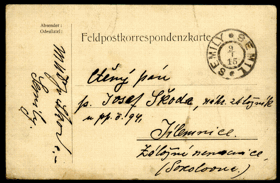 Absender:
Odesílatel:
Feldpostkorrespondenzkarte.
SEMILY ★ SEMIL
2
15
Ctěný pán
p. Josef Škoda, náhr. záložník
u pp. č. 94.
Jilemnice.
Záložní nemocnice
(Sokolovna)
Semily